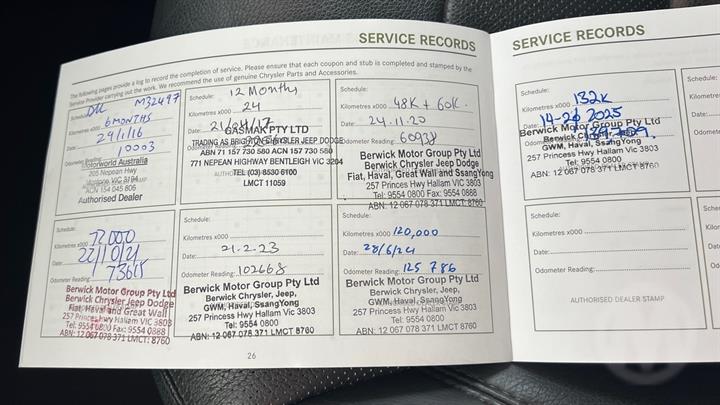 SERVICE RECORDS
The following pages provide a log to record the completion of service. Please ensure that each coupon and stub is completed and stamped by the
Service Provider carrying out the work. We recommend the use of genuine Chrysler Parts and Accessories.
Schedule: M32497
Kilometres x000 6 MONTHS
Date: 29/1/16
Odometer Reading: 10003
Motorworld Australia
205 Nepean Hwy
VIC 3194
ACN 154 045 806
Authorised Dealer
Schedule: 12 Months
Kilometres x000 24
Date: 21/04/17
GASMAK PTY LTD
TRADING AS BRIGHTON CHRYSLER JEEP DODGE
ABN 71 157 730 580 ACN 157 730 580
771 NEPEAN HIGHWAY BENTLEIGH VIC 3204
TEL (03) 8530 6100
LMCT 11059
Schedule:
Kilometres x000 48K + 60K.
Date: 24.11.20
Odometer Reading: 60938
Berwick Motor Group Pty Ltd
Berwick Chrysler Jeep Dodge
Fiat, Haval, Great Wall and SsangYong
257 Princes Hwy Hallam VIC 3803
Tel: 9554 0800 Fax: 9554 0888
ABN: 12 067 078 371 LMCT: 8760
Schedule:
Kilometres x000 72,000
Date: 22/10/21
Odometer Reading: 73615
Berwick Motor Group Pty Ltd
Berwick Chrysler Jeep Dodge
Fiat, Haval and Great Wall
257 Princes Hwy Hallam VIC 3803
Tel: 9554 0800 Fax: 9554 0888
ABN: 12 067 078 371 LMCT: 8760
Schedule:
Kilometres x000
Date: 21.2.23
Odometer Reading: 102668
Berwick Motor Group Pty Ltd
Berwick Chrysler, Jeep,
GWM, Haval, SsangYong
257 Princess Hwy Hallam VIC 3803
Tel: 9554 0800
ABN: 12 067 078 371 LMCT 8760
Schedule:
Kilometres x000 120,000
Date: 28/6/24
Odometer Reading: 125 786
Berwick Motor Group Pty Ltd
Berwick Chrysler, Jeep,
GWM, Haval, SsangYong
257 Princess Hwy Hallam VIC 3803
Tel: 9554 0800
ABN: 12 067 078 371 LMCT 8760
26
SERVICE RECORDS
Schedule:
Kilometres x000 132K
Date: 2025
Berwick Motor Group Pty Ltd
Berwick Chrysler, Jeep,
GWM, Haval, SsangYong
257 Princess Hwy Hallam VIC 3803
Tel: 9554 0800
ABN: 12 067 078 371 LMCT 8760
Schedule:
Kilometres x000
Date:
Odometer Reading:
AUTHORISED DEALER STAMP